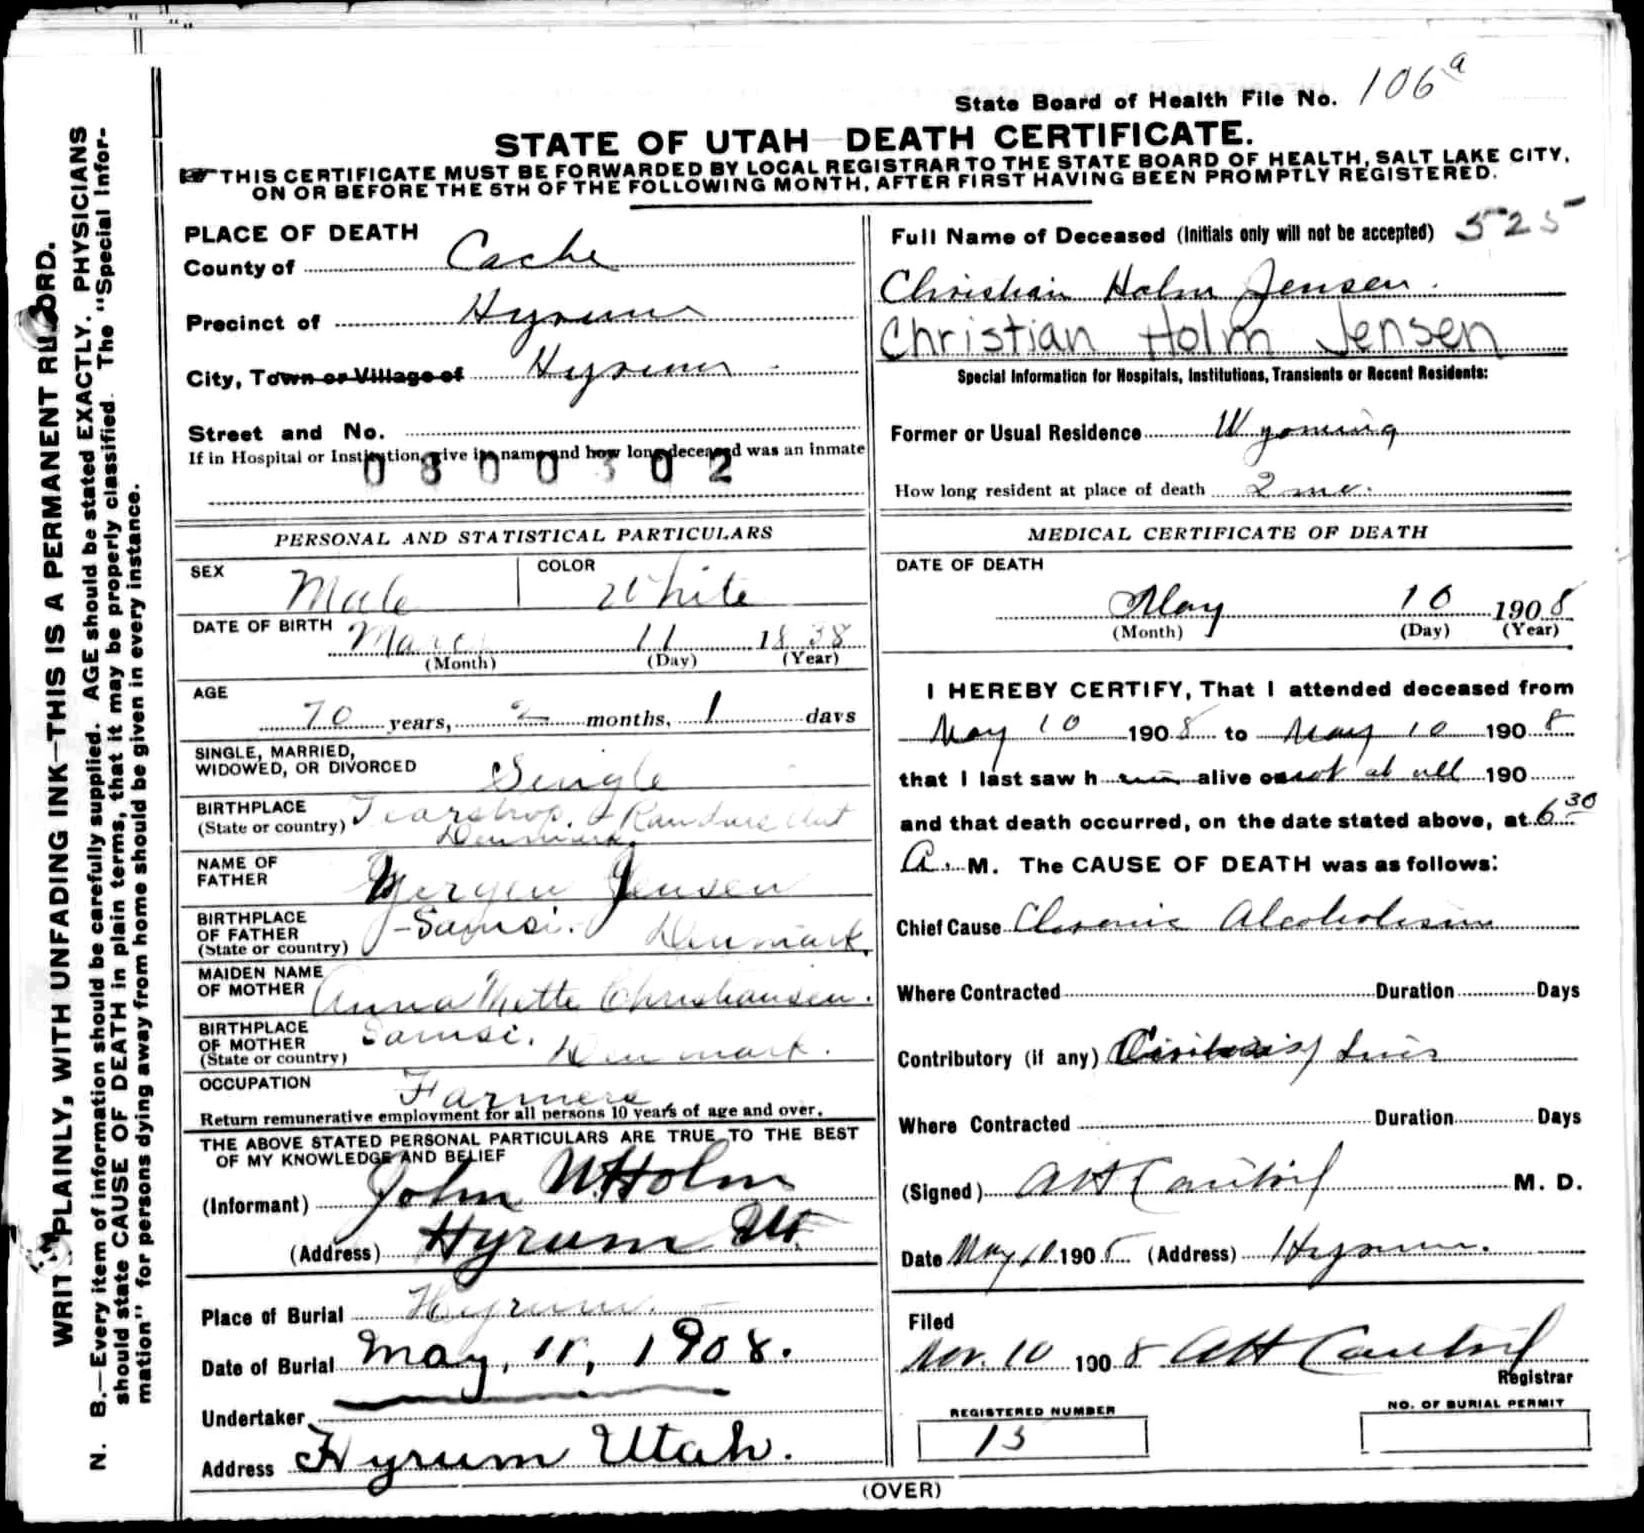 State Board of Health File No. 106a
STATE OF UTAH—DEATH CERTIFICATE.
THIS CERTIFICATE MUST BE FORWARDED BY LOCAL REGISTRAR TO THE STATE BOARD OF HEALTH, SALT LAKE CITY,
ON OR BEFORE THE 5TH OF THE FOLLOWING MONTH, AFTER FIRST HAVING BEEN PROMPTLY REGISTERED.
WRITE PLAINLY, WITH UNFADING INK—THIS IS A PERMANENT RECORD.
N. B.—Every item of information should be carefully supplied. AGE should be stated EXACTLY. PHYSICIANS
should state CAUSE OF DEATH in plain terms, that it may be properly classified. The "Special Infor-
mation" for persons dying away from home should be given in every instance.
PLACE OF DEATH
County of Cache
Precinct of Hyrum
City, Town or Village of Hyrum
Street and No.
If in Hospital or Institution, give its name and how long deceased was an inmate
0800302
PERSONAL AND STATISTICAL PARTICULARS
SEX Male COLOR White
DATE OF BIRTH March 11 1838
(Month) (Day) (Year)
AGE
70 years, 2 months, 1 days
SINGLE, MARRIED,
WIDOWED, OR DIVORCED Single
BIRTHPLACE
(State or country)
Denmark.
NAME OF
FATHER Yergen Jensen
BIRTHPLACE
OF FATHER
(State or country) Samsi. Denmark.
MAIDEN NAME
OF MOTHER Anna Mette Christiansen.
BIRTHPLACE
OF MOTHER
(State or country) Samsi. Denmark.
OCCUPATION Farmer
Return remunerative employment for all persons 10 years of age and over.
THE ABOVE STATED PERSONAL PARTICULARS ARE TRUE TO THE BEST
OF MY KNOWLEDGE AND BELIEF
(Informant) John N. Holm
(Address) Hyrum Ut
Place of Burial Hyrum.
Date of Burial May, 11, 1908.
Undertaker
Address Hyrum Utah.
Full Name of Deceased (Initials only will not be accepted) 525
Christian Holm Jensen.
Christian Holm Jensen
Special Information for Hospitals, Institutions, Transients or Recent Residents:
Former or Usual Residence Wyoming
How long resident at place of death 2 mo.
MEDICAL CERTIFICATE OF DEATH
DATE OF DEATH
May 10 1908
(Month) (Day) (Year)
I HEREBY CERTIFY, That I attended deceased from
May 10 1908 to May 10 1908
that I last saw him alive on not at all 190
and that death occurred, on the date stated above, at 6 30
A. M. The CAUSE OF DEATH was as follows:
Chief Cause Chronic Alcoholism
Where Contracted Duration Days
Contributory (if any)
Where Contracted Duration Days
(Signed) M. D.
Date May 10 190 (Address) Hyrum.
Filed
Nov. 10 1908
Registrar
REGISTERED NUMBER
NO. OF BURIAL PERMIT
(OVER)